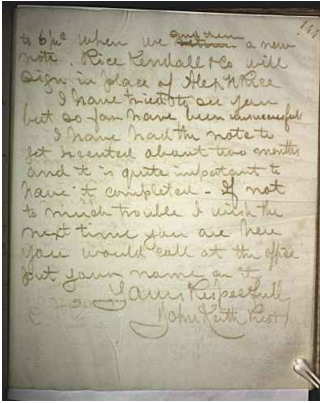 147
to 6/00 when we give them a new
note. Rice Kendall & Co will
sign in place of Alex H Rice
I have tried to see you
but so far have been unsuccessful
I have had the note to
get executed about two months
and it is quite important to
have it completed - If not
to much trouble I wish the
next time you are here
you would call at the office
put your name on it
Yours Respectfully
John Keith